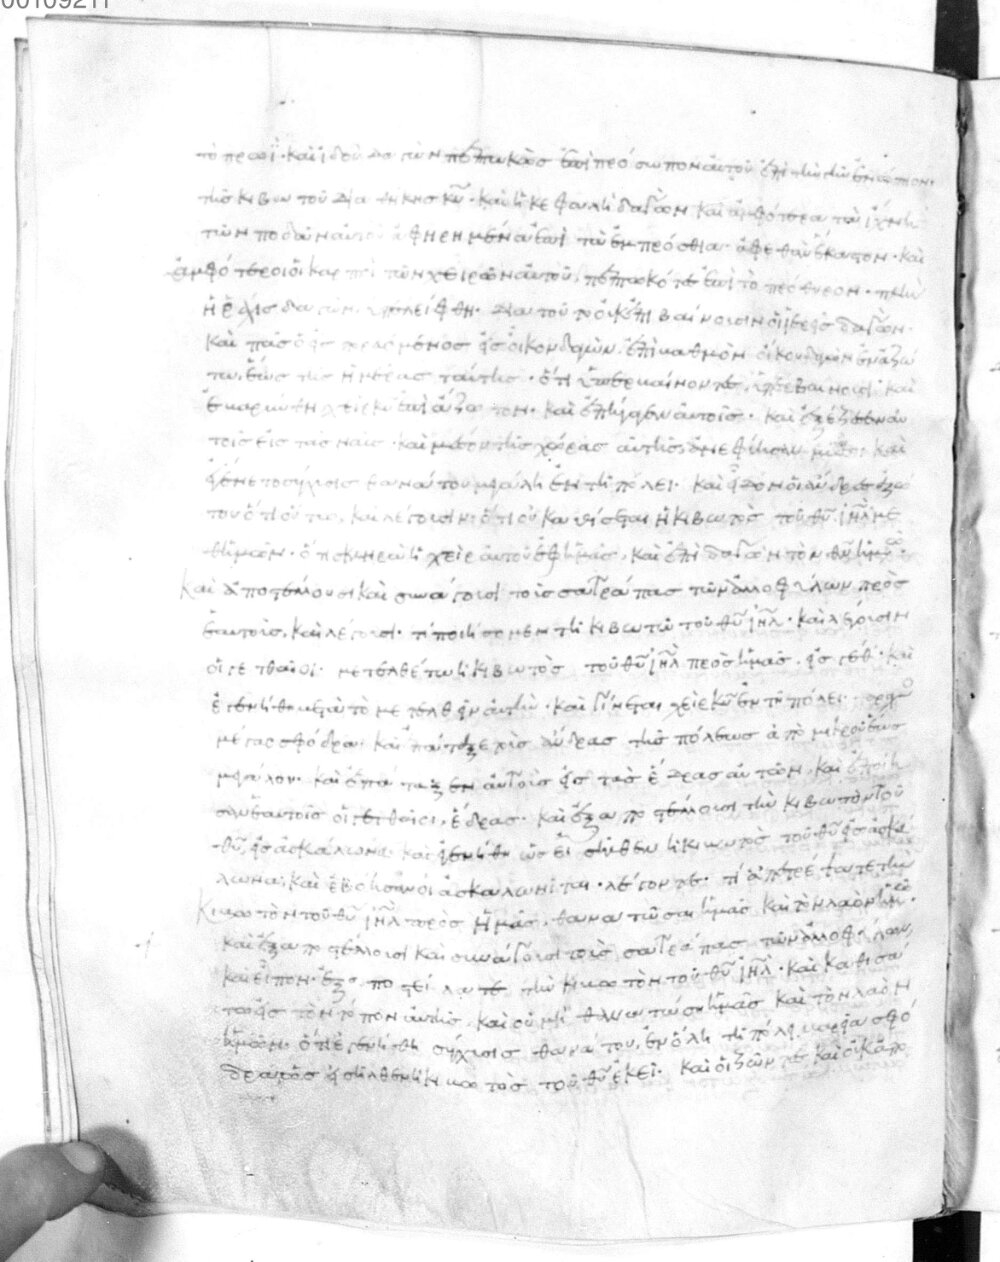 00109211
τὸ πρωΐ· καὶ ἰδοὺ δαγὼν πεπτωκὼς ἐπὶ πρόσωπον αὐτοῦ ἐπὶ τὴν γῆν ἐνώπιον
τῆς κιβωτοῦ διαθήκης κυ· καὶ ἡ κεφαλὴ δαγὼν καὶ ἀμφότερα τὰ ἴχνη
τῶν ποδῶν αὐτοῦ ἀφηρημένα ἐπὶ τὰ ἐμπρόσθια ἕκαστον· καὶ
ἀμφότεροι οἱ καρποὶ τῶν χειρῶν αὐτοῦ πεπτωκότες ἐπὶ τὸ πρόθυρον· πλὴν
ἡ ῥάχις δαγὼν ὑπελείφθη· διὰ τοῦτο οὐκ ἐπιβαίνουσιν οἱ ἱερεῖς δαγών·
καὶ πᾶς ὁ εἰσπορευόμενος εἰς οἶκον δαγὼν ἐπὶ βαθμὸν οἴκου δαγὼν ἐν ἀζώ
τω, ἕως τῆς ἡμέρας ταύτης· ὅτι ὑπερβαίνοντες ὑπερβαίνουσι· καὶ
ἐβαρύνθη χεὶρ κυ ἐπὶ ἄζωτον· καὶ ἐπήγαγεν αὐτοῖς· καὶ ἐξέζεσεν αὐ
τοῖς εἰς τὰς ναῦς· καὶ μέσον τῆς χώρας αὐτῆς ἀνεφύησαν μύες· καὶ
ἐγένετο σύγχυσις θανάτου μεγάλη ἐν τῇ πόλει· καὶ εἶδον οἱ ἄνδρες ἀζώ
του ὅτι οὕτως, καὶ λέγουσιν· ὅτι οὐ καθίσεται ἡ κιβωτὸς τοῦ θυ ἰηλ με
θ' ἡμῶν· ὅτι σκληρὰ ἡ χεὶρ αὐτοῦ ἐφ' ἡμᾶς, καὶ ἐπὶ δαγὼν τὸν θν ἡμῶν·
καὶ ἀποστέλλουσι καὶ συνάγουσι τοὺς σατράπας τῶν ἀλλοφύλων πρὸς
ἑαυτοὺς, καὶ λέγουσι· τί ποιήσομεν τῇ κιβωτῷ τοῦ θυ ἰηλ· καὶ λέγουσιν
οἱ γεθθαῖοι· μετελθέτω ἡ κιβωτὸς τοῦ θυ ἰηλ πρὸς ἡμᾶς, εἰς γέθ· καὶ
ἐγενήθη μετὰ τὸ μετελθεῖν αὐτὴν· καὶ γίνεται χεὶρ κυ ἐν τῇ πόλει· τάραχος
μέγας σφόδρα· καὶ ἐπάταξε τοὺς ἄνδρας τῆς πόλεως ἀπὸ μικροῦ ἕως
μεγάλου· καὶ ἐπάταξεν αὐτοὺς εἰς τὰς ἕδρας αὐτῶν, καὶ ἐποίη
σαν ἑαυτοῖς οἱ γεθθαῖοι, ἕδρας· καὶ ἐξαποστέλλουσι τὴν κιβωτὸν τοῦ
θυ, εἰς ἀσκάλωνα· καὶ ἐγενήθη ὡς εἰσῆλθεν ἡ κιβωτὸς τοῦ θυ εἰς ἀσκά
λωνα, καὶ ἐβόησαν οἱ ἀσκαλωνῖται λέγοντες· τί ἀπεστρέψατε τὴν
κιβωτὸν τοῦ θυ ἰηλ πρὸς ἡμᾶς, θανατῶσαι ἡμᾶς καὶ τὸν λαὸν ἡμῶν·
καὶ ἐξαποστέλλουσι καὶ συνάγουσι τοὺς σατράπας τῶν ἀλλοφύλων,
καὶ εἶπον· ἐξαποστείλατε τὴν κιβωτὸν τοῦ θυ ἰηλ· καὶ καθισά
τω εἰς τὸν τόπον αὐτῆς, καὶ οὐ μὴ θανατώσῃ ἡμᾶς καὶ τὸν λαὸν
ἡμῶν· ὅτι ἐγενήθη σύγχυσις θανάτου, ἐν ὅλῃ τῇ πόλει βαρεῖα σφό
δρα, ὡς εἰσῆλθεν ἡ κιβωτὸς τοῦ θυ ἐκεῖ· καὶ οἱ ζῶντες καὶ οὐκ ἀπο